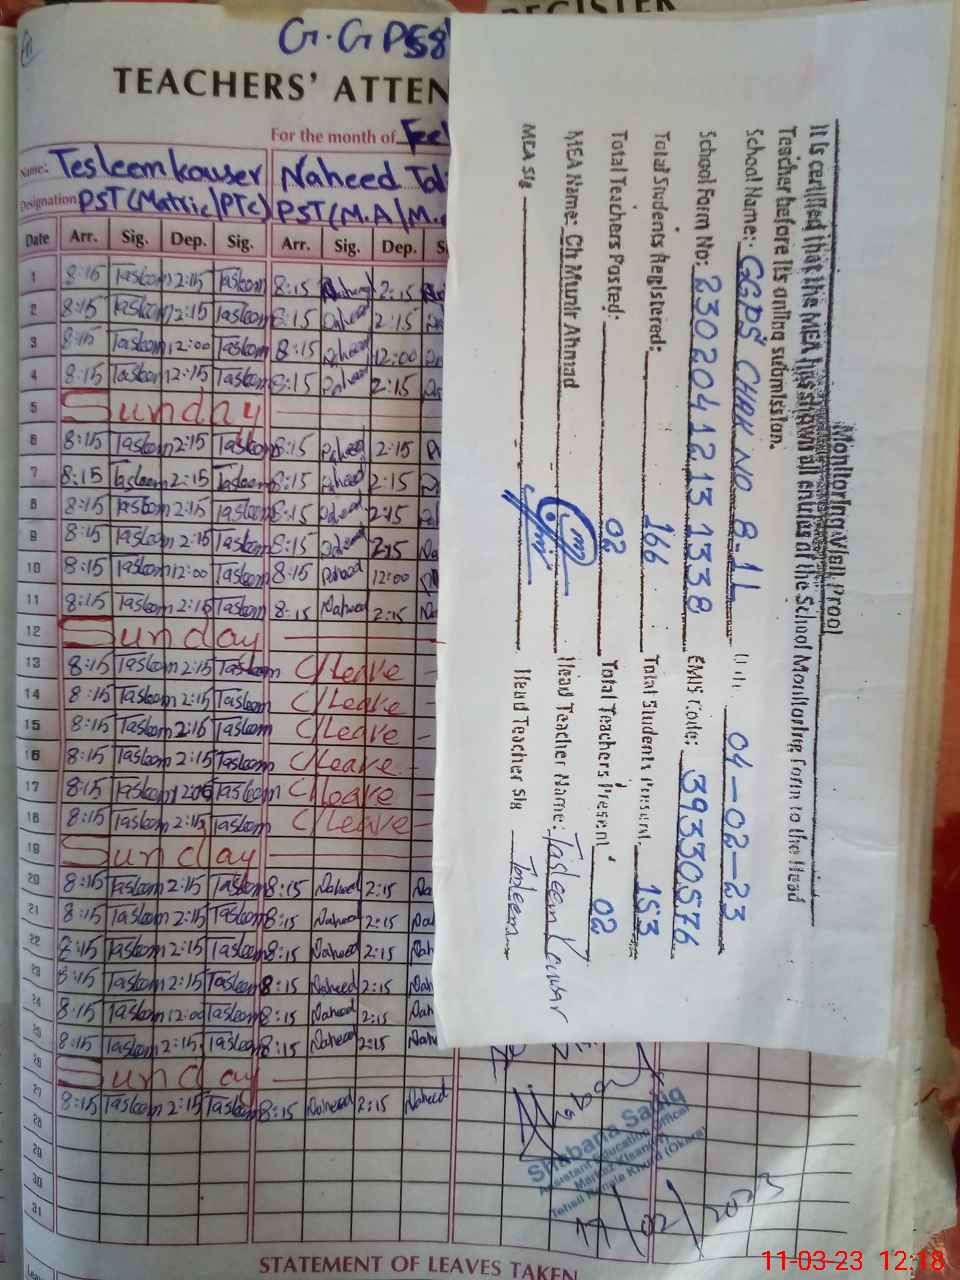 REGISTER
G.GPS 8
TEACHERS' ATTEN
For the month of Feb
Name: Tesleem kouser Naheed
Designation PST (Matric/PTC) PST (M.A/M.
Date Arr. Sig. Dep. Sig. Arr. Sig. Dep. S
1 8:15 Tasleem 2:15 Tasleem 8:15 Naheed 2:15
2 8:15 Tasleem 2:15 Tasleem 8:15 Naheed 2:15
3 8:15 Tasleem 12:00 Tasleem 8:15 Naheed 12:00
4 8:15 Tasleem 2:15 Tasleem 8:15 Naheed 2:15
5 Sunday
6 8:15 Tasleem 2:15 Tasleem 8:15 Naheed 2:15
7 8:15 Tasleem 2:15 Tasleem 8:15 Naheed 2:15
8 8:15 Tasleem 2:15 Tasleem 8:15 Naheed 2:15
9 8:15 Tasleem 2:15 Tasleem 8:15 Naheed 2:15
10 8:15 Tasleem 12:00 Tasleem 8:15 Naheed 12:00
11 8:15 Tasleem 2:15 Tasleem 8:15 Naheed 2:15
12 Sunday
13 8:15 Tasleem 2:15 Tasleem C/Leave
14 8:15 Tasleem 2:15 Tasleem C/Leave
15 8:15 Tasleem 2:15 Tasleem C/Leave
16 8:15 Tasleem 2:15 Tasleem C/Leave
17 8:15 Tasleem Tasleem C/Leave
18 8:15 Tasleem 2:15 Tasleem C/Leave
19 Sunday
20 8:15 Tasleem 2:15 Tasleem 8:15 Naheed 2:15 Na
21 8:15 Tasleem 2:15 Tasleem 8:15 Naheed 2:15 Nah
22 8:15 Tasleem 2:15 Tasleem 8:15 Naheed 2:15 Nah
23 8:15 Tasleem 2:15 Tasleem 8:15 Naheed 2:15 Nah
24 8:15 Tasleem 12:00 Tasleem 8:15 Naheed 2:15 Nah
25 8:15 Tasleem 2:15 Tasleem 8:15 Naheed 2:15 Nah
26 Sunday
27 8:15 Tasleem 2:15 Tasleem 8:15 Naheed 2:15 Naheed
28
29
30
31
STATEMENT OF LEAVES TAKEN
Leave
Monitoring Visit Proof
It is certified that the MEA has shown all entries of the School Monitoring Form to the Head
Teacher before its online submission.
School Name: GGPS CHAK NO 8.1L 04-02-23
School Form No: 23020412131338 EMIS Code: 39330576
Total Students Registered: 166 Total Students Present 153
Total Teachers Posted: 02 Total Teachers Present 02
MEA Name: Ch Munir Ahmad Head Teacher Name: Tasleem Kousar
MEA Sig Head Teacher Sig Tasleem
Shabana Sadiq
Assistant Education Officer
Markaz
Tehsil Renala Khurd (Okara)
11-03-23 12:18